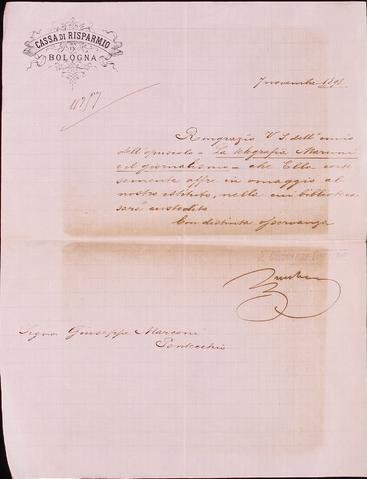 CASSA DI RISPARMIO
IN
BOLOGNA
7 novembre 1898
Ringrazio V. S. dell'invio
dell'opuscolo - la telegrafia Marconi
ed il giornalismo - che Ella corte
semente offre in omaggio al
nostro istituto, nella cui biblioteca
sarà custodito
Con distinta osservanza
Signor Giuseppe Marconi
Pontecchio